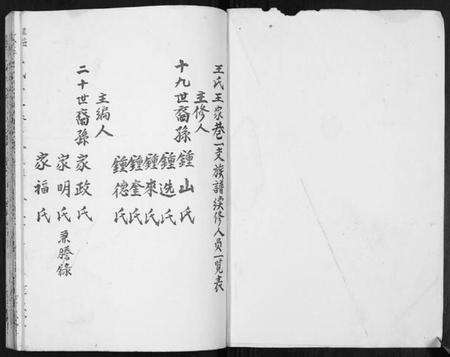 王氏王家巷一支族譜续修人员一覧表
主修人
十九世裔孫
鍾山氏
鍾选氏
鍾來氏
鍾奎氏
鍾德氏
主编人
二十世裔孫
家政氏
家明氏 兼謄錄
家福氏